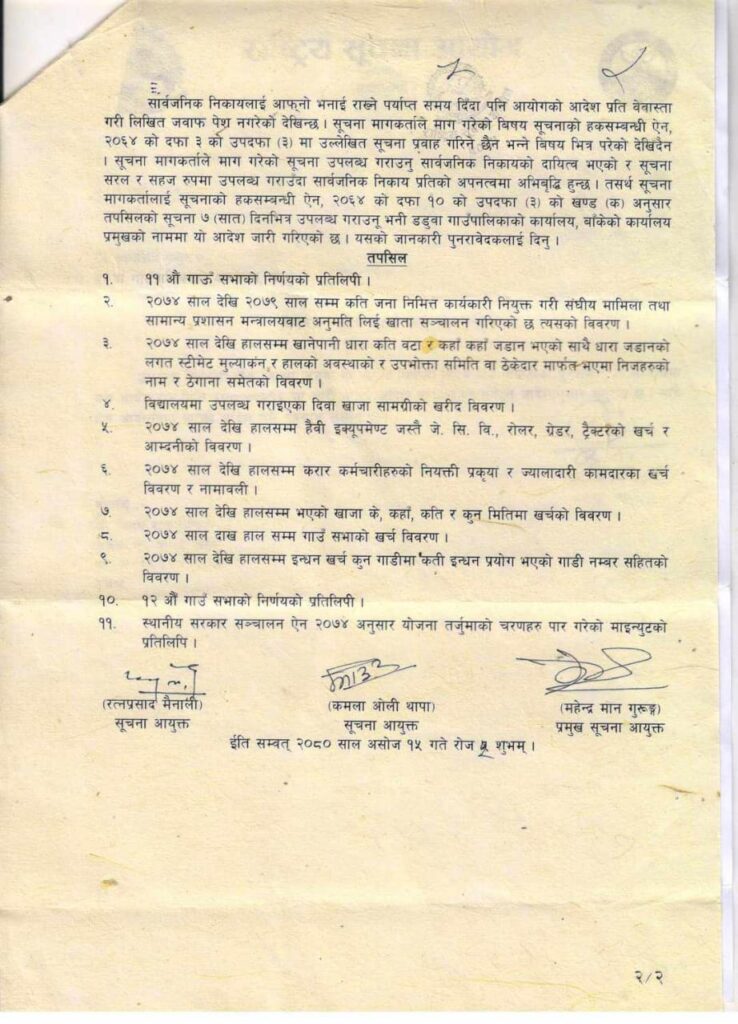 सार्वजनिक निकायलाई आफ्नो भनाई राख्ने पर्याप्त समय दिंदा पनि आयोगको आदेश प्रति बेवास्ता
गरी लिखित जवाफ पेश नगरेको देखिन्छ । सूचना मागकर्ताले माग गरेको बिषय सूचनाको हकसम्बन्धी ऐन,
२०६४ को दफा ३ को उपदफा (३) मा उल्लेखित सूचना प्रवाह गरिने छैन भन्ने बिषय भित्र परेको देखिदैन
। सूचना मागकर्ताले माग गरेको सूचना उपलब्ध गराउनु सार्वजनिक निकायको दायित्व भएको र सूचना
सरल र सहज रुपमा उपलब्ध गराउँदा सार्वजनिक निकाय प्रतिको अपनत्वमा अभिबृद्धि हुन्छ । तसर्थ सूचना
मागकर्तालाई सूचनाको हकसम्बन्धी ऐन, २०६४ को दफा १० को उपदफा (३) को खण्ड (क) अनुसार
तपसिलको सूचना ७ (सात) दिनभित्र उपलब्ध गराउनू भनी डडुवा गाउँपालिकाको कार्यालय, बाँकेको कार्यालय
प्रमुखको नाममा यो आदेश जारी गरिएको छ । यसको जानकारी पुनरावेदकलाई दिनु ।
तपसिल
१. ११ औं गाऊँ सभाको निर्णयको प्रतिलिपी ।
२. २०७४ साल देखि २०७९ साल सम्म कति जना निमित्त कार्यकारी नियुक्त गरी संघीय मामिला तथा
सामान्य प्रशासन मन्त्रालयवाट अनुमति लिई खाता सञ्चालन गरिएको छ त्यसको विवरण ।
३. २०७४ साल देखि हालसम्म खानेपानी धारा कति वटा र कहाँ कहाँ जडान भएको साथै धारा जडानको
लगत स्टीमेट मुल्याकंन र हालको अवस्थाको र उपभोक्ता समिति वा ठेकेदार मार्फत भएमा निजहरुको
नाम र ठेगाना समेतको विवरण ।
४. विद्यालयमा उपलब्ध गराइएका दिवा खाजा सामग्रीको खरीद विवरण ।
५. २०७४ साल देखि हालसम्म हैवी इक्यूपमेण्ट जस्तै जे. सि. वि., रोलर, ग्रेडर, ट्रैक्टरेको खर्च र
आम्दनीको विवरण ।
६. २०७४ साल देखि हालसम्म करार कर्मचारीहरुको नियक्ती प्रकृया र ज्यालादारी कामदारका खर्च
विवरण र नामावली ।
७. २०७४ साल देखि हालसम्म भएको खाजा के, कहाँ, कति र कुन मितिमा खर्चको विवरण ।
८. २०७४ साल दाख हाल सम्म गाउँ सभाको खर्च विवरण ।
९. २०७४ साल देखि हालसम्म इन्धन खर्च कुन गाडीमा कती इन्धन प्रयोग भएको गाडी नम्बर सहितको
विवरण ।
१०. १२ औं गाउँ सभाको निर्णयको प्रतिलिपी ।
११. स्थानीय सरकार सञ्चालन ऐन २०७४ अनुसार योजना तर्जुमाको चरणहरु पार गरेको माइन्युटको
प्रतिलिपि ।
(रत्नप्रसाद मैनाली) (कमला ओली थापा) (महेन्द्र मान गुरूङ्ग)
सूचना आयुक्त सूचना आयुक्त प्रमुख सूचना आयुक्त
ईति सम्वत् २०८० साल असोज १५ गते रोज शुभम् ।
२/२